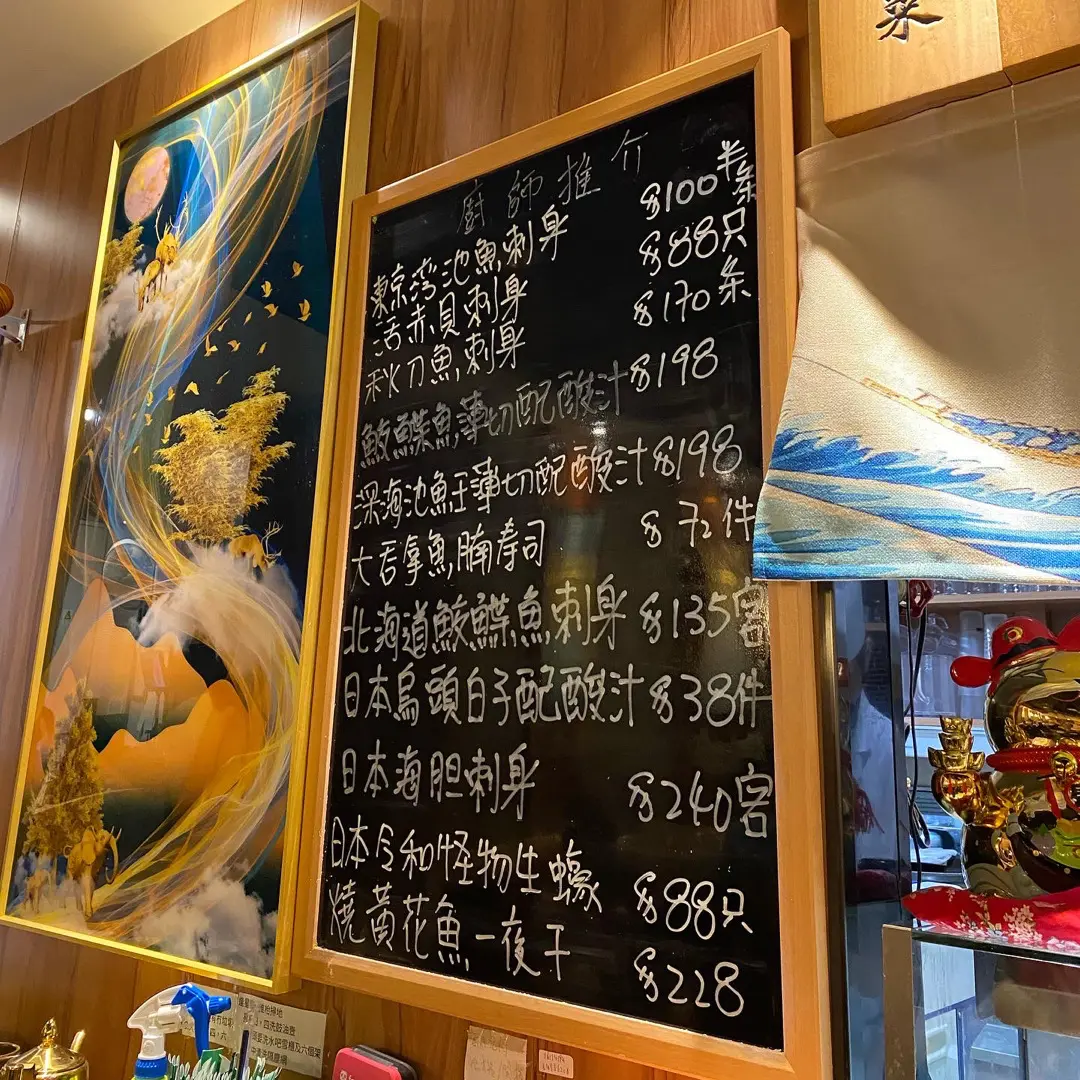 菜
廚師推介
東京湾池魚刺身 $100半条
活赤貝刺身 $88只
秋刀魚刺身 $170条
鮁鰈魚薄切配酸汁 $198
深海池魚王薄切配酸汁 $198
大吞拿魚腩寿司 $72件
北海道鮁鰈魚刺身 $135客
日本烏頭白子配酸汁 $38件
日本海胆刺身 $240客
日本令和怪物生蠔 $88只
燒黃花魚一夜干 $228